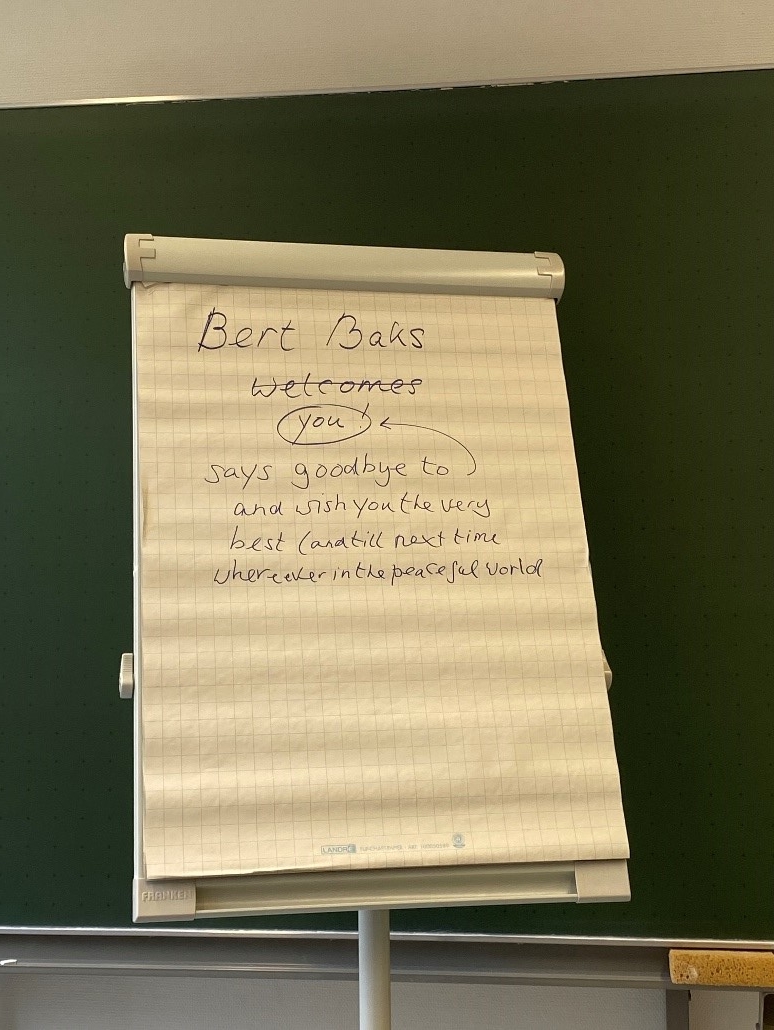 Bert Baks
welcomes
you!
says goodbye to
and wish you the very
best (and till next time
whereever in the peaceful world
LANDRÉ
FRANKEN